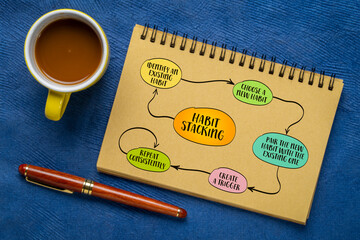 IDENTIFY AN
EXISTING
HABIT
CHOOSE A
NEW HABIT
HABIT
STACKING
PAIR THE NEW
HABIT WITH THE
EXISTING ONE
CREATE
A TRIGGER
REPEAT
CONSISTENTLY